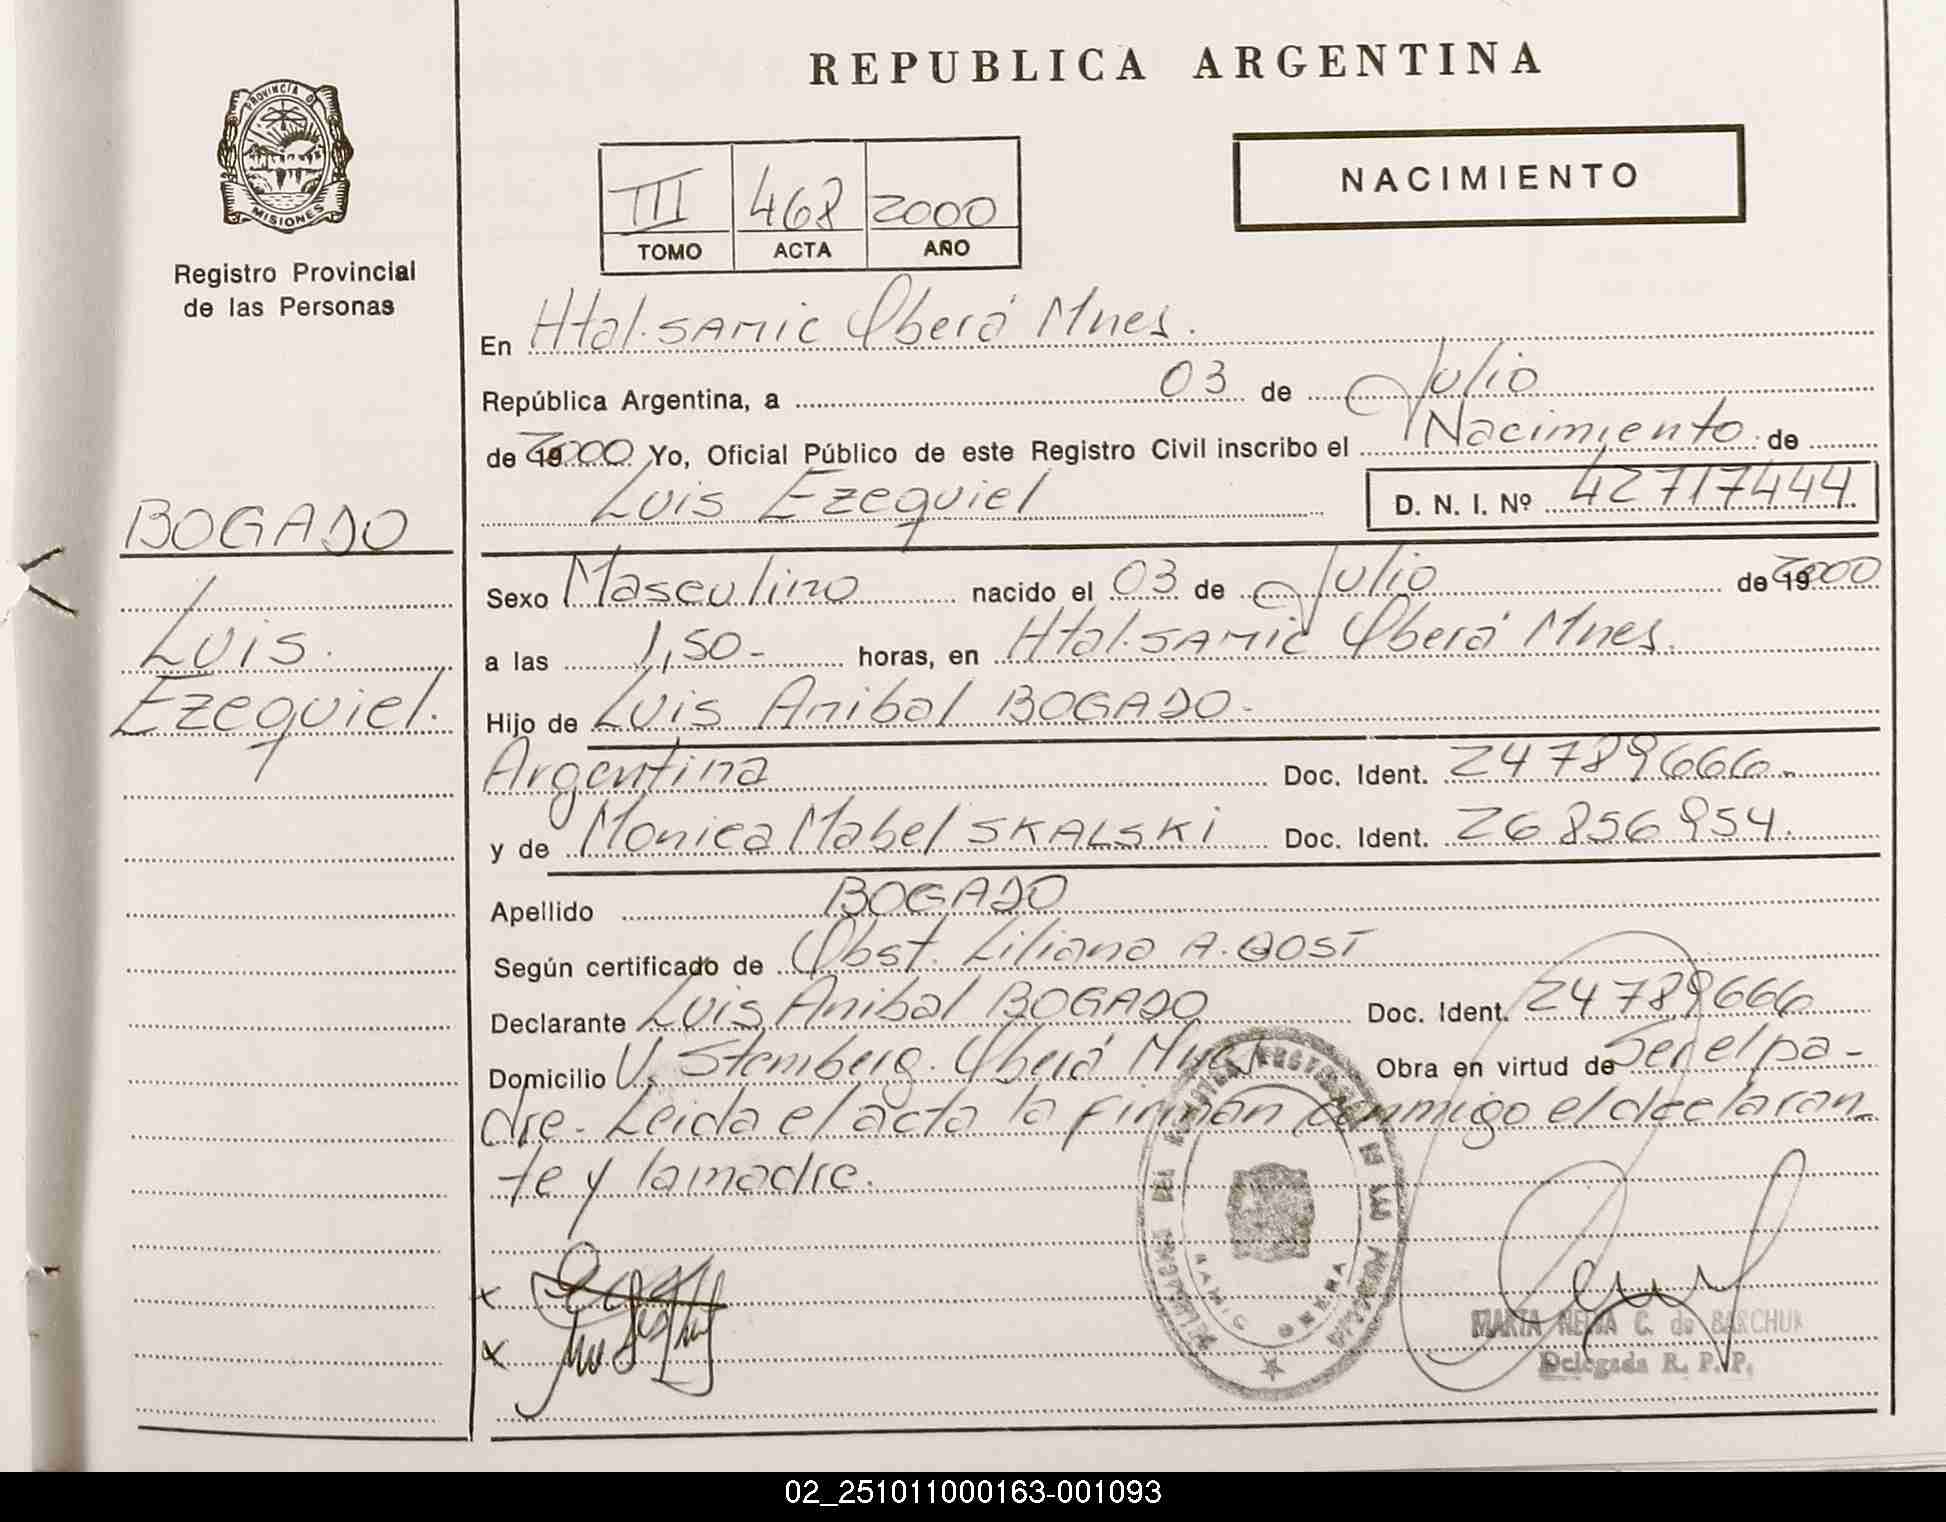 REPUBLICA ARGENTINA
PROVINCIA DE
MISIONES
Registro Provincial
de las Personas
NACIMIENTO
III 468 2000
TOMO ACTA AÑO
En Htal. SAMIC Oberá Mnes.
República Argentina, a 03 de Julio
de 2000 Yo, Oficial Público de este Registro Civil inscribo el Nacimiento de
Luis Ezequiel D. N. I. Nº 42717444.
BOGADO
Luis
Ezequiel.
Sexo Masculino nacido el 03 de Julio de 2000
a las 1,50- horas, en Htal. SAMIC Oberá Mnes.
Hijo de Luis Anibal BOGADO-
Argentina Doc. Ident. 24789666.
y de Monica Mabel SKALSKI Doc. Ident. 26856954.
Apellido BOGADO
Según certificado de Obst. Liliana A. GOST
Declarante Luis Anibal BOGADO Doc. Ident. 24789666
Domicilio V. Stemberg. Oberá Mnes Obra en virtud de Ser el pa-
dre- Leida el acta la firman conmigo el declaran
te y la madre.
x
x
MARTA C. de BARCHUK
Delegada R. P. P.
SAMIC OBERA
02_251011000163-001093